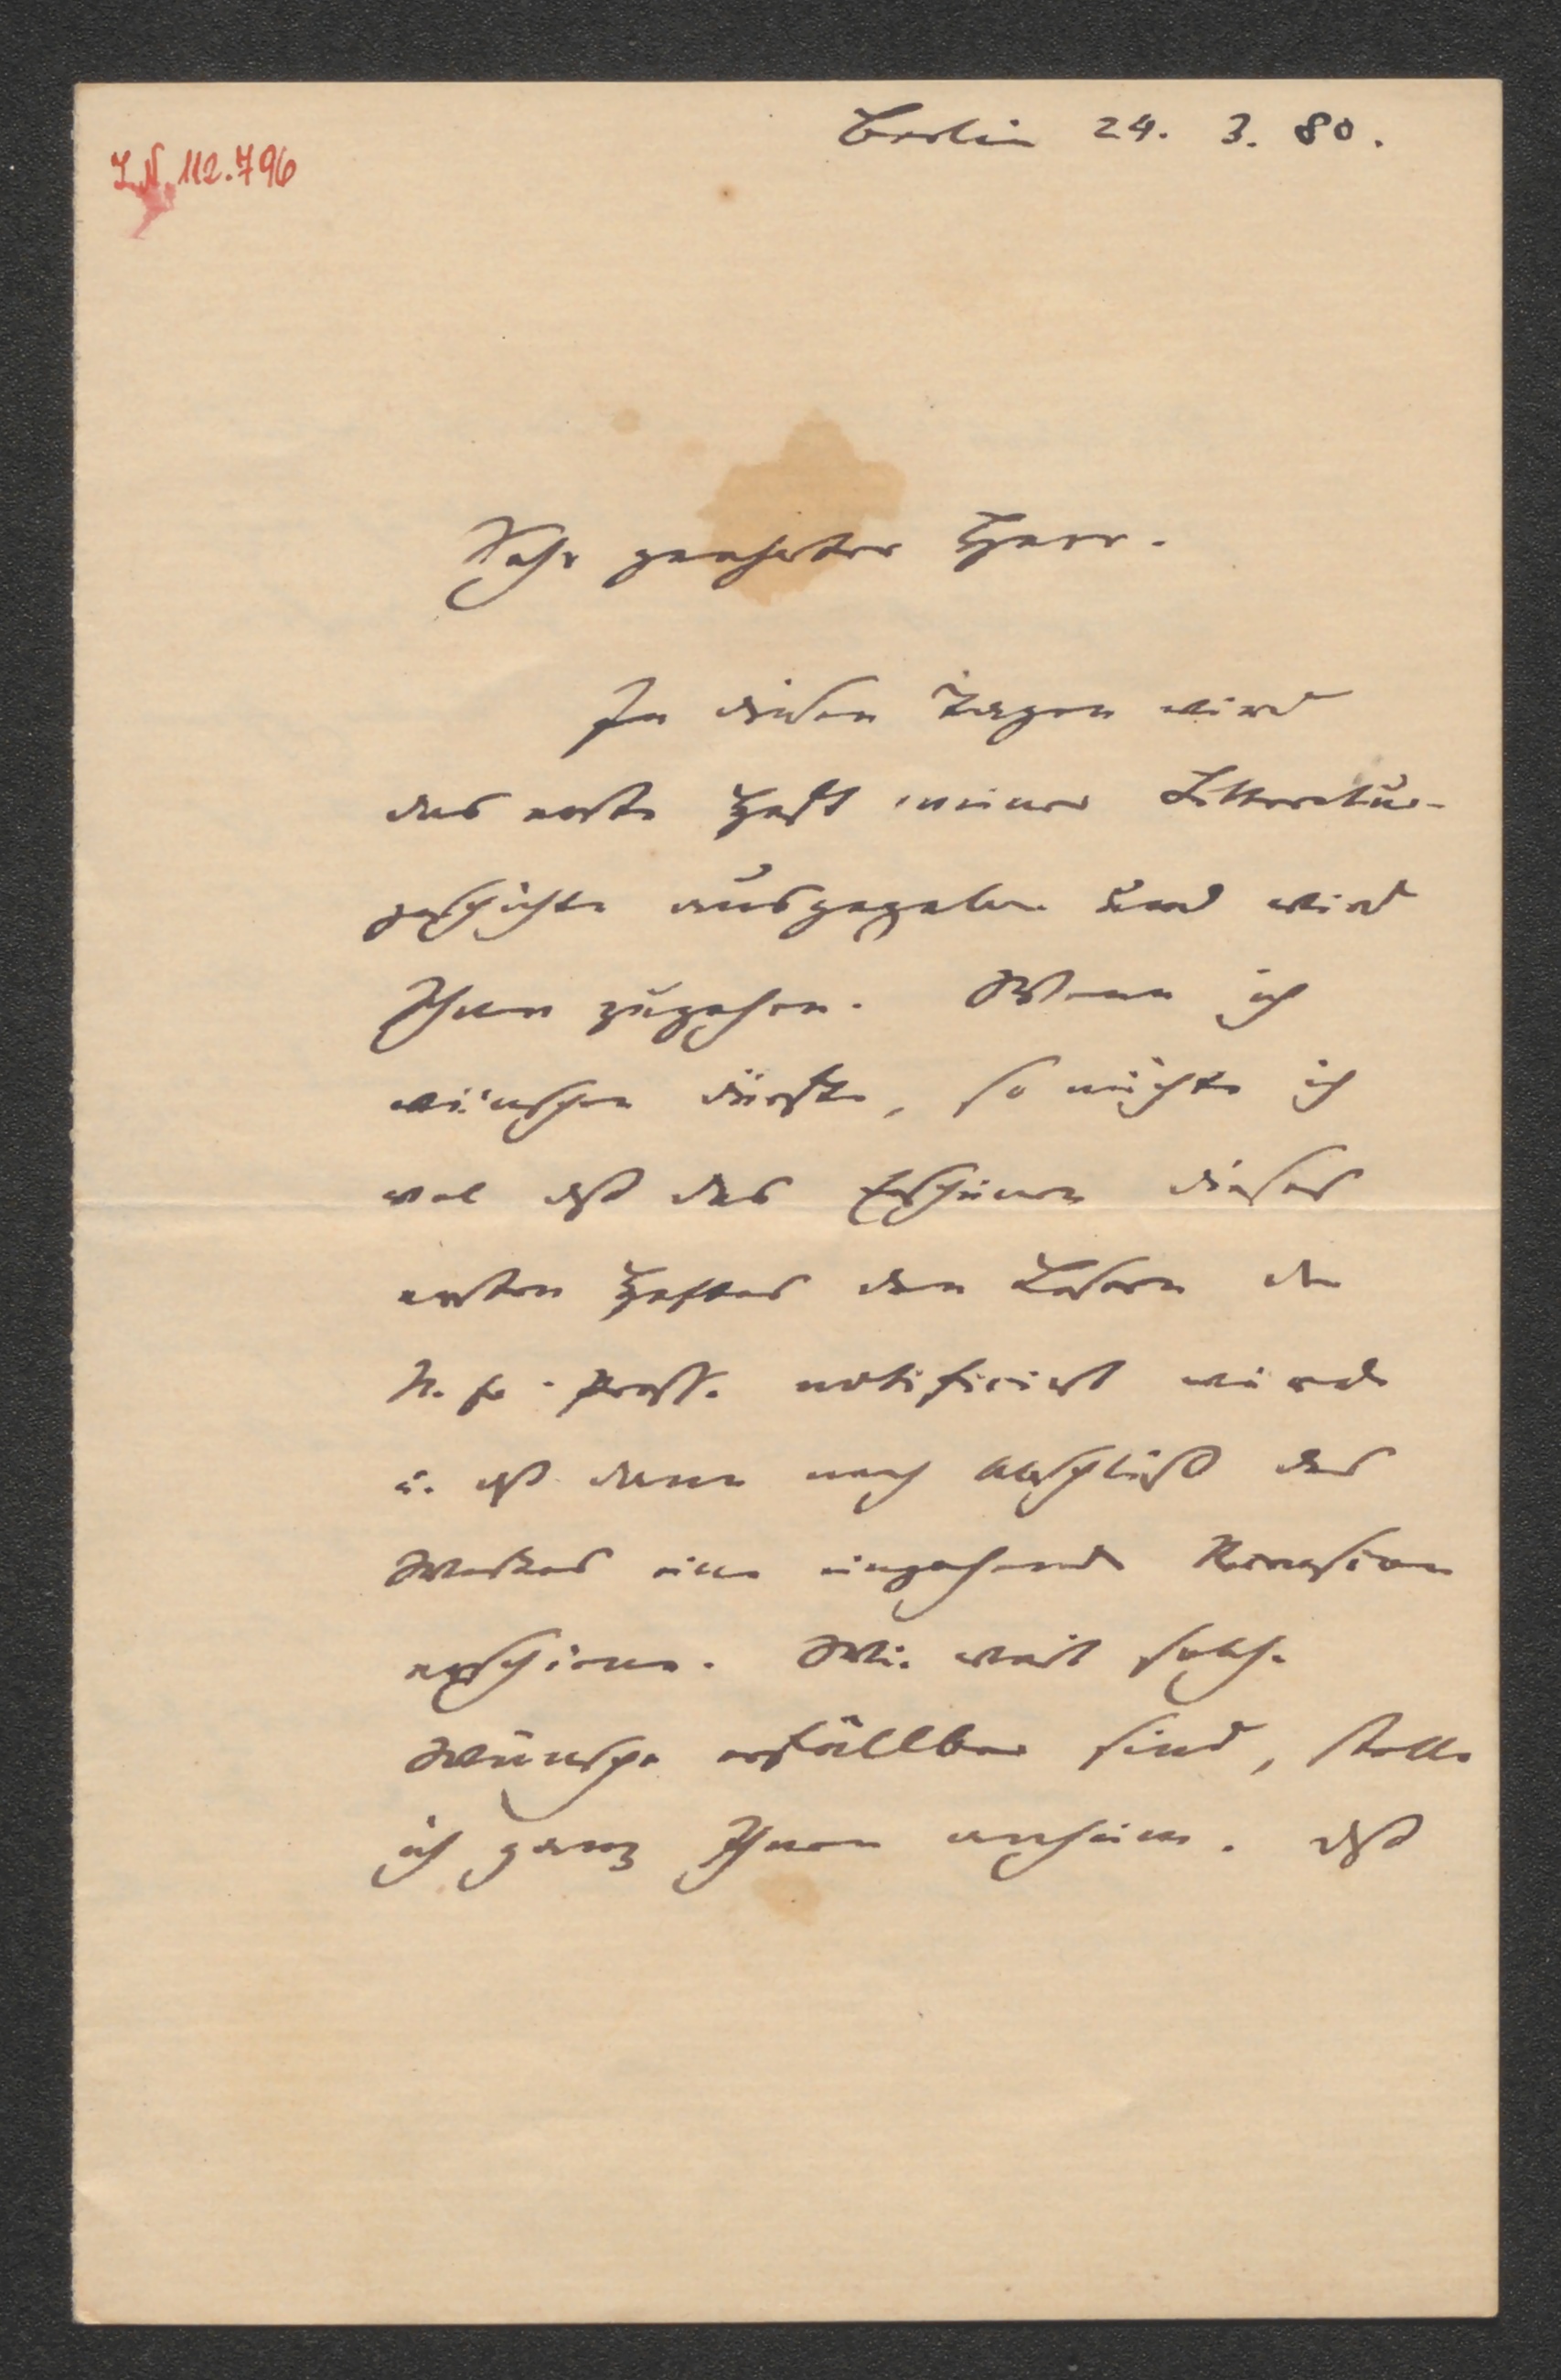 Berlin 24. 3. 80.
I.N. 112.796
Sehr geehrter Herr.
In diesen Tagen wird
das erste Heft meiner Litteratur-
geschichte ausgegeben und wird
Ihnen zugehen. Wenn ich
wünschen dürfte, so möchte ich
wol dß das Erscheinen dieses
ersten Heftes den Lesern der
N. fr. Presse notificirt würde
u. dß dann nach Abschluß des
Werkes eine eingehende Recension
erschiene. Wie weit solche
Wünsche erfüllbar sind, stelle
ich ganz Ihnen anheim. dß